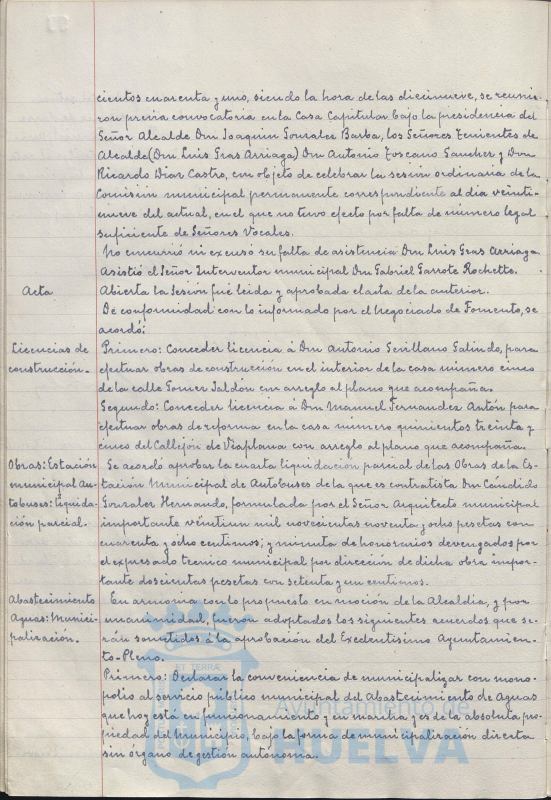 cientos cuarenta y uno, siendo la hora de las diecinueve, se reunie-
ron previa convocatoria en la Casa Capitular bajo la presidencia del
Señor Alcalde Don Joaquin Gonzalez Barba, los Señores Tenientes de
Alcalde (Don Luis Gras Arriaga) Don Antonio Toscano Sanchez y Don
Ricardo Diaz Castro, con objeto de celebrar la sesión ordinaria de la
Comisión municipal permanente correspondiente al dia veinti-
nueve del actual, en el que no tuvo efecto por falta de número legal
suficiente de Señores Vocales.
No concurrió ni excusó su falta de asistencia Don Luis Gras Arriaga.
Asistió el Señor Interventor municipal Don Gabriel Garrote Rochette.
Acta
Abierta la Sesión fué leida y aprobada el acta de la anterior.
De conformidad con lo informado por el Negociado de Fomento, se
acordó:
Licencias de
construcción.-
Primero: Conceder licencia á Don Antonio Sevillano Galindo, para
efectuar obras de construcción en el interior de la casa número cinco
de la calle Gomez Jaldón con arreglo al plano que acompaña.
Segundo: Conceder licencia á Don Manuel Fernandez Antón para
efectuar obras de reforma en la casa número quinientos treinta y
cinco del Callejón de Viaplana con arreglo al plano que acompaña.
Obras: Estación
municipal Au-
tobuses: liquida-
ción parcial.
Se acordó aprobar la cuarta liquidación parcial de las Obras de la Es-
tación Municipal de Autobuses de la que es contratista Don Cándido
Gonzalez Hernando, formulada por el Señor Arquitecto municipal
importante veintiun mil novecientas noventa y ocho pesetas con
cuarenta y ocho centimos; y minuta de honorarios devengados por
el expresado tecnico municipal por dirección de dicha obra impor-
tante doscientas pesetas con setenta y un centimos.
Abastecimiento
Aguas: Munici-
palización.
En armonia con lo propuesto en moción de la Alcaldia, y por
unanimidad, fueron adoptados los siguientes acuerdos que se-
rán sometidos á la aprobación del Excelentisimo Ayuntamien-
to-Pleno.
Primero: Declarar la conveniencia de municipalizar con mono-
polio al servicio público municipal del Abastecimiento de Aguas
que hoy está en funcionamiento y en marcha y es de la absoluta pro-
piedad del Municipio, bajo la forma de municipalización directa
sin órgano de gestión autonoma.
ET TERRÆ
Ayuntamiento de
HUELVA